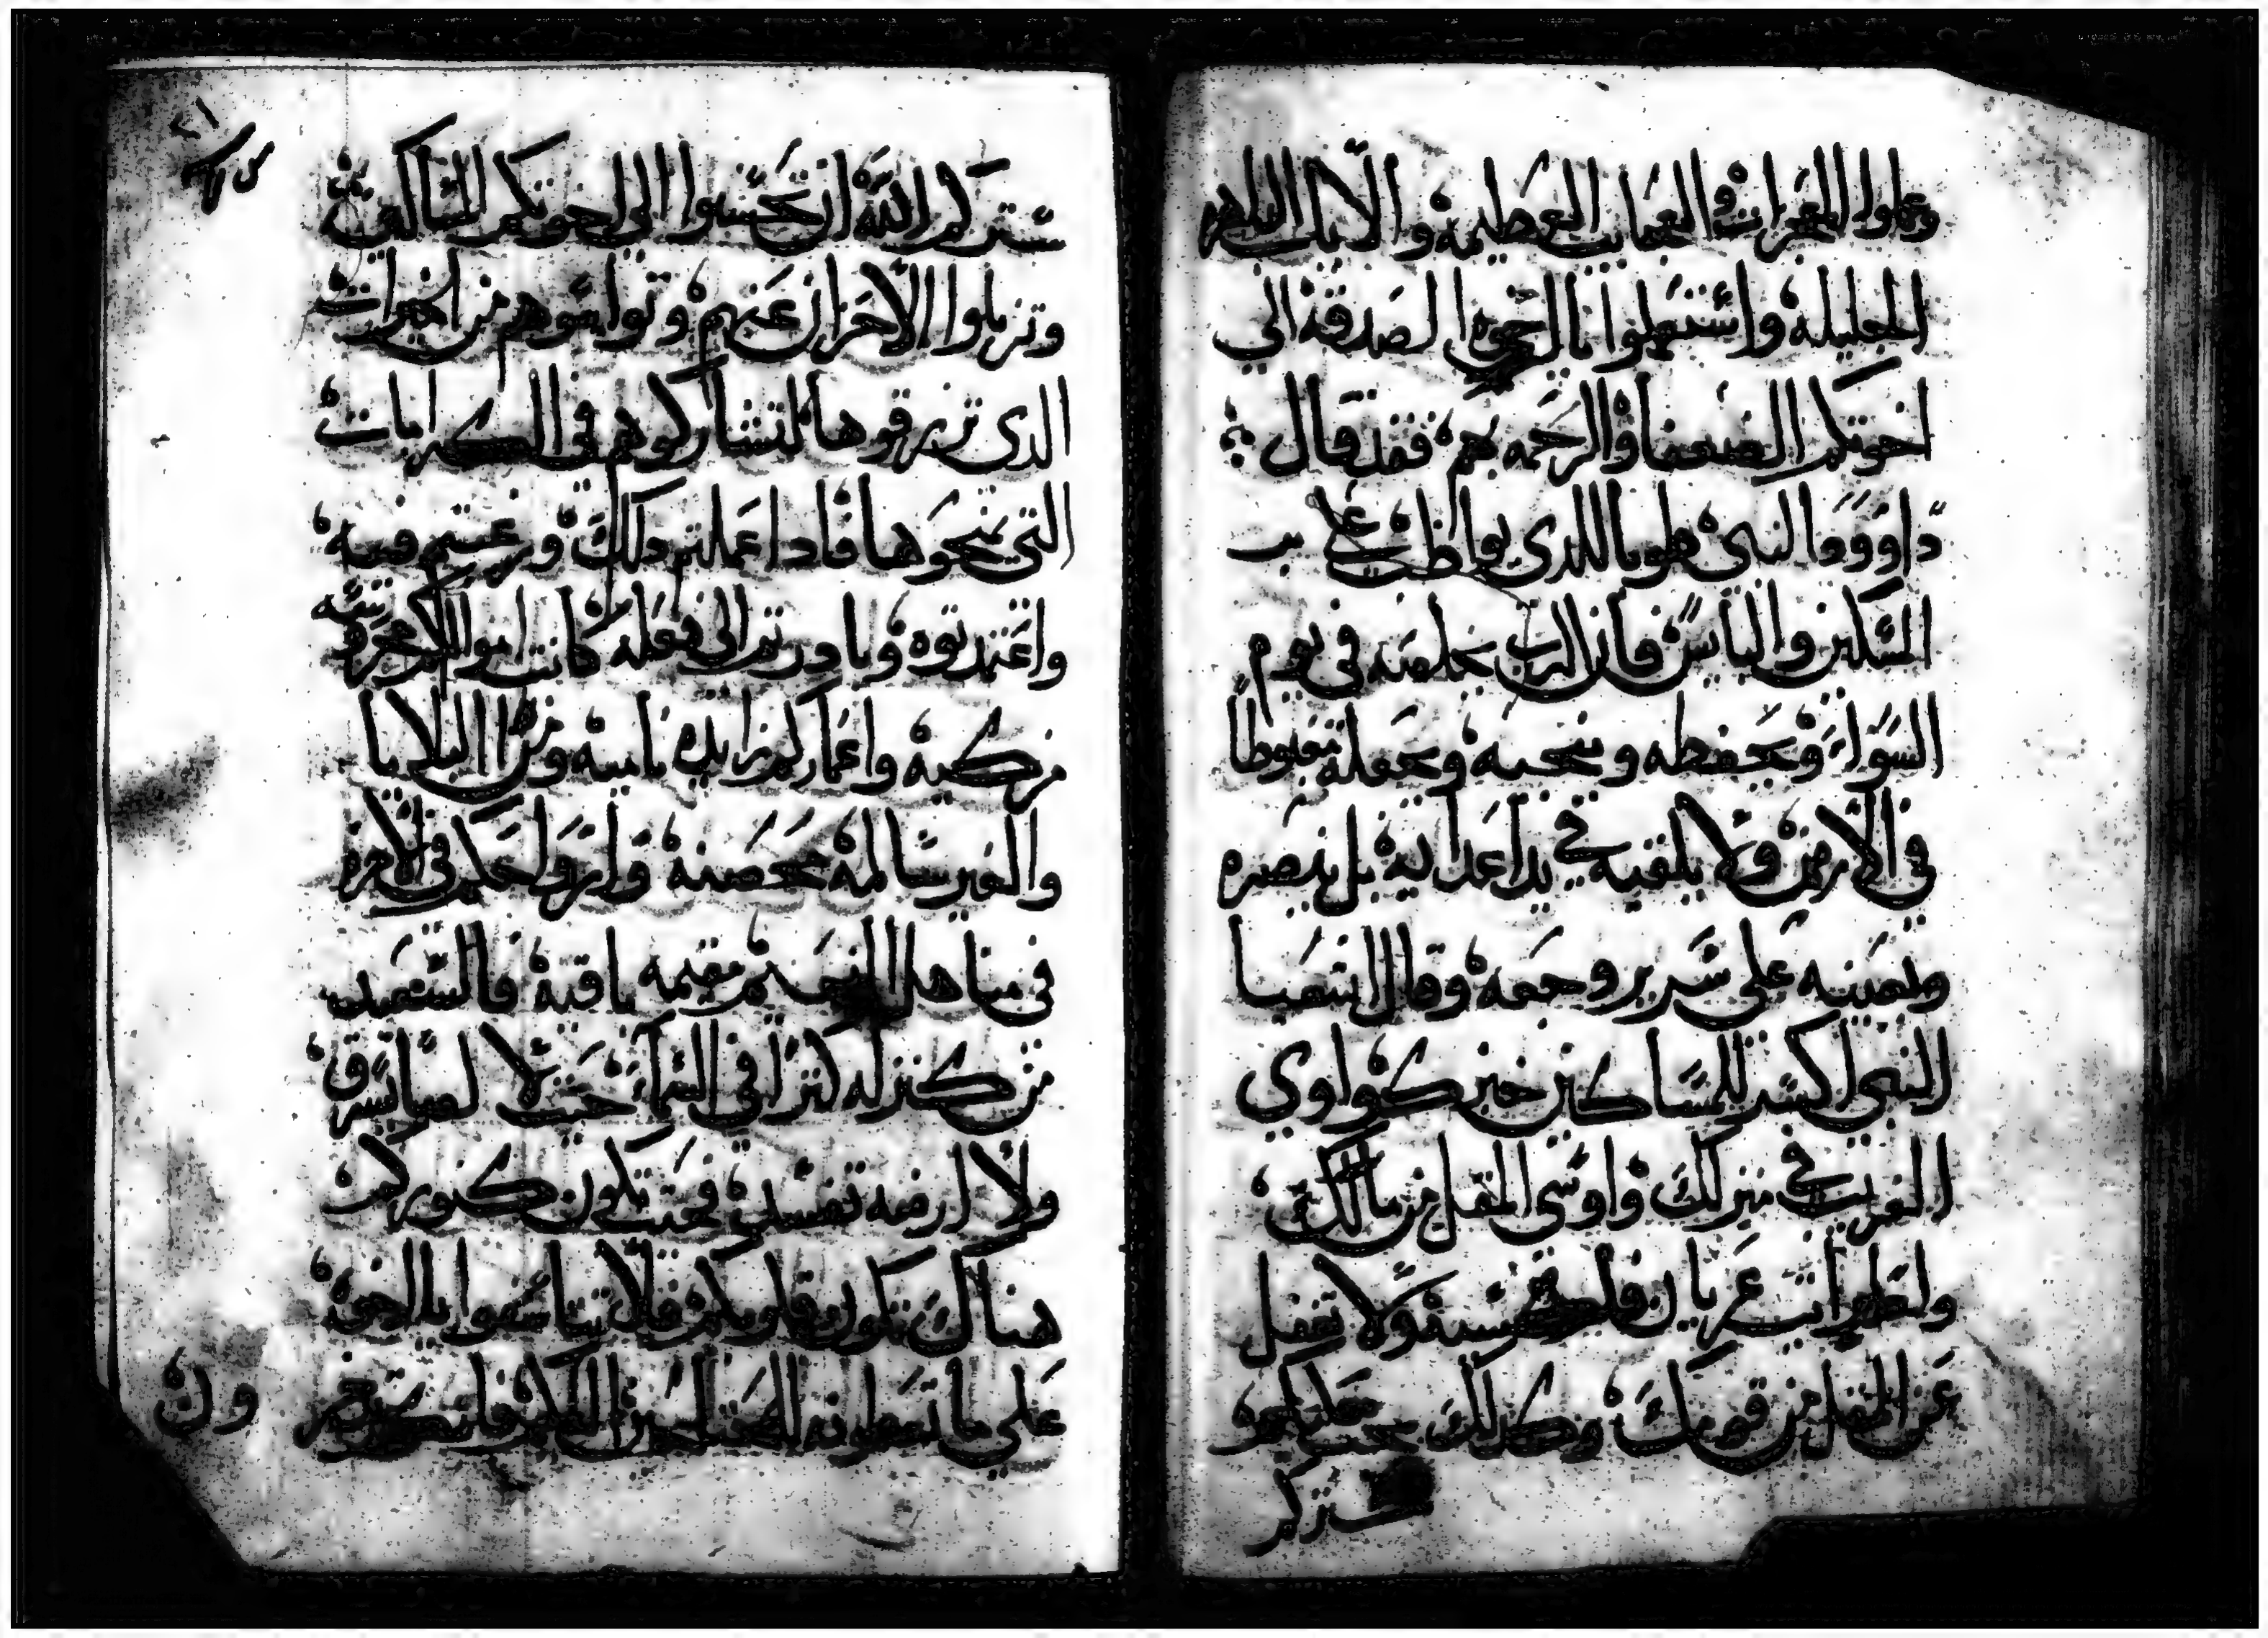 وعملوا المعجزات والعجايب العظيمة والايات الباهره
الجليله واستعملوا يا اخوه الصدقة الي
اخوتكم الضعفا والرحمه بهم فقد قال
داوود النبي طوبا للدي يواظب علي
المسكين والبايس فان الرب يخلصه في يوم
السوا ويحفظه وينجيه ويجعله مغبوطا
في الارض ولا يلقيه في يد اعدايه بل ينصره
ويعينه علي سرير وجعه وقال اشعيا
النبي اكسر للمساكين خبزك واوي
الغريب في منزلك واوسي المقل من مالك
وادا رايت عريان فا ولا تغفل
عن المقل من قومك وكدلك يجب عليكم
ستركم
ستركم الله ان تحسنوا الي اخوتكم المساكين
وتزيلوا الاحزان عنهم وتواسوهم من الخيرات
الدي ترزقوها لتشاركوهم في الكرامات
التي تمنحوها فادا عملتم دلك ورغبتم فيه
واعتمدتوه وبادرتم الي فعله كانت اموالكم
مزكيه واعماركم زايده ناميه ومن البلايا
والغير سالمه محصنه وارواحكم في الاخره
في مناهل النعيم مقيمه باقية فالسعيد
من كنز له كنزا في السما حيث لا لصا يسرق
ولا ارضه تفسد فحيث تكون كنوزكم
هناك تكون قلوبكم فلا تتاسفوا يا اخوة
علي ما تعطونه للمحتاجين
ون